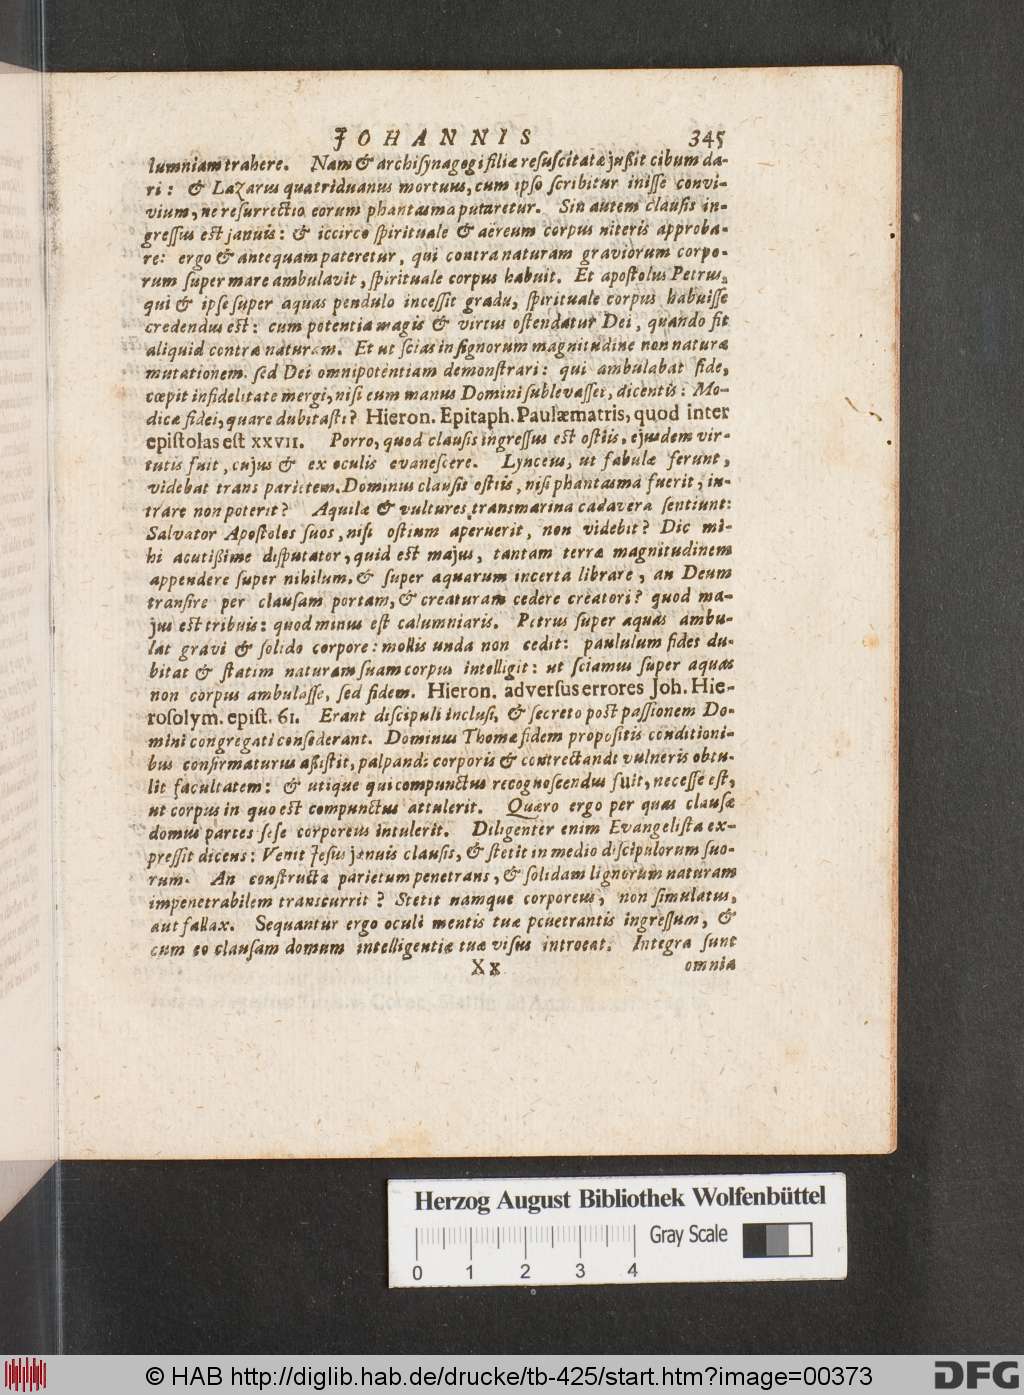 JOHANNIS 345
lumniam trahere. Nam & archiſynagogi filiæ reſuſcitatæ juſsit cibum da-
ri: & Lazarus quatriduanus mortuus, cum ipſo ſcribitur iniſſe convi-
vium, ne reſurrectio eorum phantasma putaretur. Sin autem clauſis in-
greſſus eſt januis: & iccirco ſpirituale & aëreum corpus niteris approba-
re: ergo & antequam pateretur, qui contra naturam graviorum corpo-
rum ſuper mare ambulavit, ſpirituale corpus habuit. Et apoſtolus Petrus,
qui & ipſe ſuper aquas pendulo inceſſit gradu, ſpirituale corpus habuiſſe
credendus eſt: cum potentia magis & virtus oſtendatur Dei, quando fit
aliquid contra naturam. Et ut ſcias in ſignorum magnitudine non naturæ
mutationem. ſed Dei omnipotentiam demonſtrari: qui ambulabat fide,
cœpit infidelitate mergi, niſi eum manus Domini ſublevaſſet, dicentis: Mo-
dicæ fidei, quare dubitaſti? Hieron. Epitaph. Paulæ matris, quod inter
epiſtolas eſt XXVII. Porro, quod clauſis ingreſſus eſt oſtiis, ejusdem vir-
tutis fuit, cujus & ex oculis evaneſcere. Lynceus, ut fabulæ ferunt,
videbat trans parietem. Dominus clauſis oſtiis, niſi phantasma fuerit, in-
trare non poterit? Aquilæ & vultures transmarina cadavera ſentiunt:
Salvator Apoſtolos ſuos, niſi oſtium aperuerit, non videbit? Dic mi-
hi acutiſsime diſputator, quid eſt majus, tantam terræ magnitudinem
appendere ſuper nihilum, & ſuper aquarum incerta librare, an Deum
tranſire per clauſam portam, & creaturam cedere creatori? quod ma-
jus eſt tribuis: quod minus eſt calumniaris. Petrus ſuper aquas ambu-
lat gravi & ſolido corpore: mollis unda non cedit: paululum fides du-
bitat & ſtatim naturam ſuam corpus intelligit: ut ſciamus ſuper aquas
non corpus ambulaſſe, ſed fidem. Hieron. adverſus errores Joh. Hie-
roſolym. epiſt. 61. Erant diſcipuli incluſi, & ſecreto poſt paſſionem Do-
mini congregati conſederant. Dominus Thomæ fidem propoſitis conditioni-
bus confirmaturus aſsiſtit, palpandi corporis & contrectandi vulneris obtu-
lit facultatem: & utique qui compunctus recognoscendus fuit, neceſſe eſt,
ut corpus in quo eſt compunctus attulerit. Quæro ergo per quas clauſæ
domus partes ſeſe corporeus intulerit. Diligenter enim Evangeliſta ex-
preſſit dicens: Venit Jeſus januis clauſis, & ſtetit in medio diſcipulorum ſuo-
rum. An conſtructa parietum penetrans, & ſolidam lignorum naturam
impenetrabilem transcurrit? Stetit namque corporeus, non ſimulatus,
aut fallax. Sequantur ergo oculi mentis tuæ pcuetrantis ingreſſum, &
cum eo clauſam domum intelligentiæ tuæ viſus introeat. Integra ſunt
Xx omnia
Herzog August Bibliothek Wolfenbüttel
Gray Scale
0 1 2 3 4
© HAB http://diglib.hab.de/drucke/tb-425/start.htm?image=00373
DFG